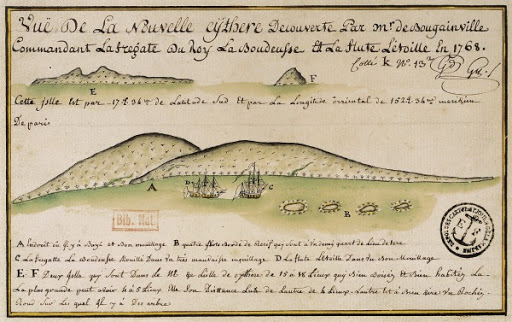 Vuë De La Nouvelle Cythere Decouverte Par mr. de Bougainville
Commandant La fregate Du Roy La Boudeusse Et La flute Letoille En 1768.
Cotté k No. 13
E
F
Cette jsle Est par 17d. 34m. de Latitude Sud Et par La Longitude oriental de 152d. 36m. meridien
De paris
A
D
C
B
Bib. Nat.
A Endroit il y a Baye et Bon mouillage B quatre jslots Bordé de Recif qui sont à un demy quart de Lieu de terre
C La fregatte La Boudeusse Mouillé Dans un très mauvaise mouillage D La flute Létoille Dans un Bon Mouillage
E. F Deux jslle qui sont Dans le de Lislle de Cythere de 15 a 18 Lieux qui Bien Boizez et Bien habitéz La
La plus grande peut avoir 4 à 5 Lieux Son Distance Lute de Lautre de Lieux Lautre Est à Bien
Rond sur Le quel il y à Des arbre